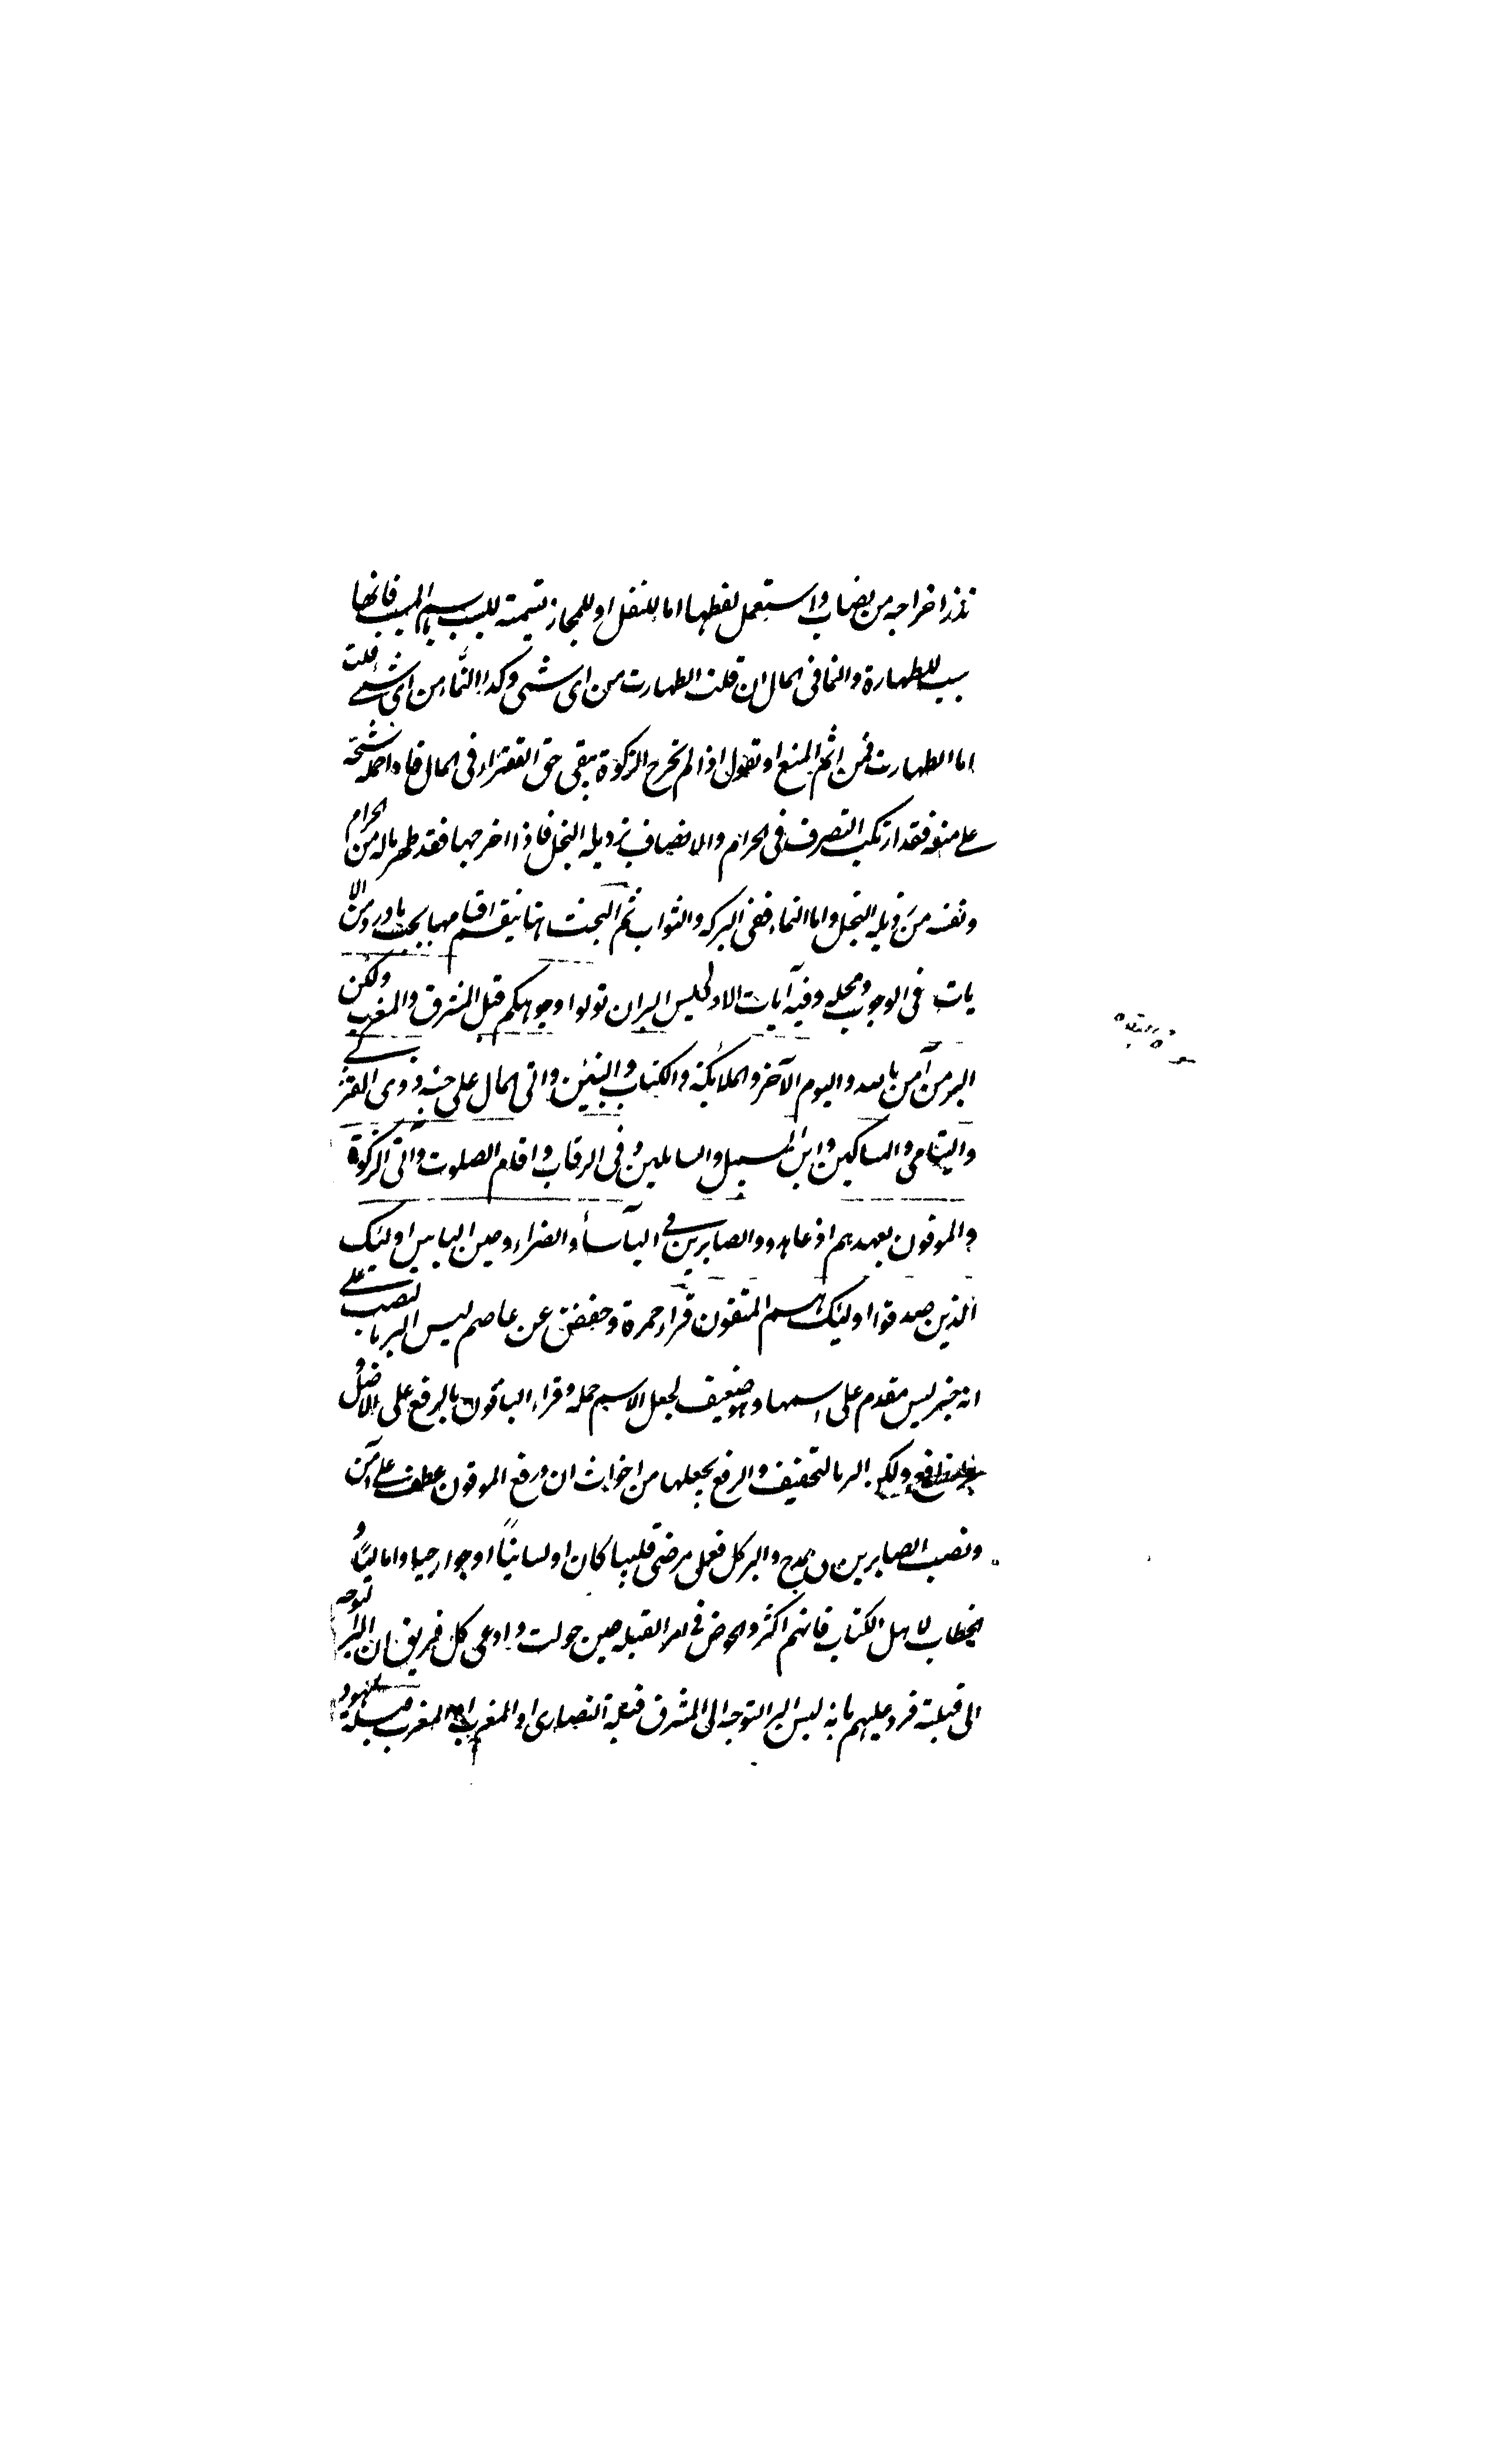 نذر اخراجه من نصاب واستعمل لفظها اما للنقل او للمجاز تسمية للسبب باسم المسبب فانها
سبب للطهارة والنما فى المال ان قلت الطهارت من اى شى وكذا النّماء من اى شئ قلت
اما الطهارت فمن اثم المنع او نقول اذا لم يخرج الزكوة يبقى حق الفقراء فى المال فاذا حمله شحّه
على منعه فقد ارتكب التصرف فى الحرام والاتصاف برذيله البخل فاذا اخرجها فقد طهر ماله من الحرام
ونفسه من رذيله البخل واما النماء ففى البركه والثواب ثم البحث هنا ينقسم اقسام منها بحث ما ورد من الا
يات فى الوجوب ومحله وفيه آيات الاولى ليس البر ان تولوا وجوهكم قبل المشرق والمغرب ولكن
البر من آمن بالله واليوم الآخر والملائكة والكتاب والنبيّن واتى المال على حبه ذوى القربى
واليتامى والمساكين وابن السبيل والسايلين وفى الرقاب واقام الصلوت وآتى الزكوة
والموفون بعهدهم اذ عاهدوا والصابرين فى البأساء والضراء وحين الباس اولئك
الذين صدقوا اولئك هم المتقون قراء حمزة وحفص عن عاصم ليس البر بالنصب على
انه خبر ليس مقدم على اسمها وهو ضعيف لجعل الاسم جمله وقراء الباقون بالرفع على الاصل و
ولكن البر بالتخفيف والرفع بجعلها من اخوات ان ورفع الموفون عطف على آمن
ونصب الصابرين على المدح والبر كل فعل مرضى قلبيا كان او لسانيًا او جوارحيا واماليًا و
الخطاب لاهل الكتاب فانهم اكثروا الخوض فى امر القبله حين حولت وادعى كل فريق ان البر التوجه
الى قبلته فرد عليهم بانه ليس البر التوجه الى المشرق قبلة النصارى او المغرب قبله اليهود